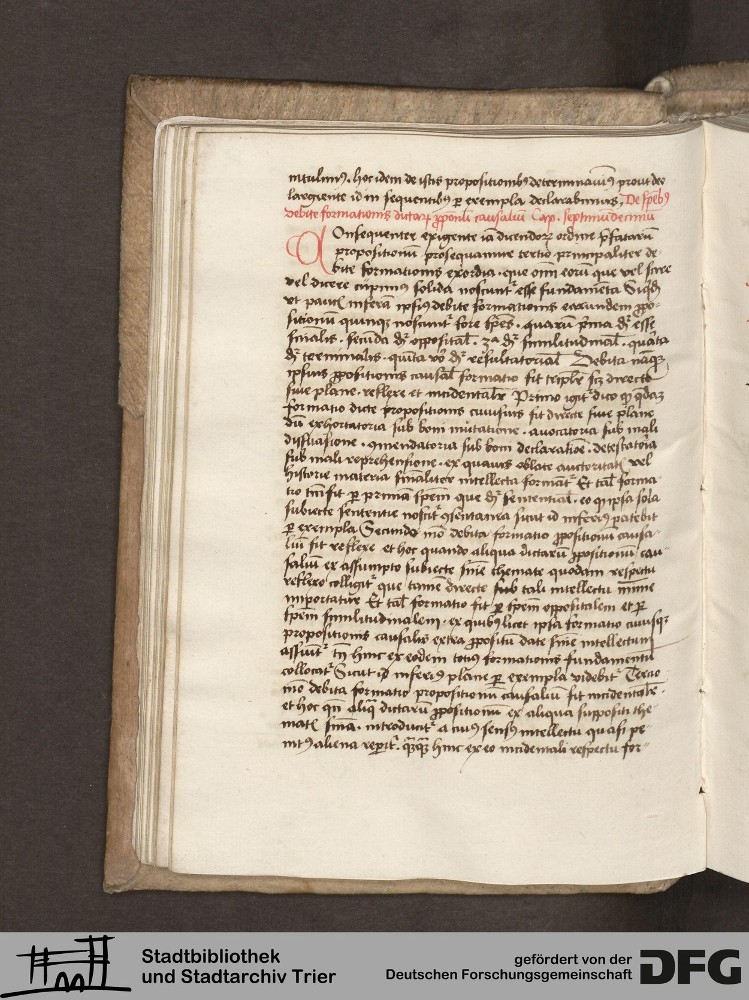 intulimus. hoc idem de istis propositionibus determinauimus prout deo
largiente id in sequentibus per exempla declarabimus. De speciebus
debite formationis dictarum propositionum causalium Cap. septimudecimum
Consequenter exigente iam dicendorum ordine prefatarum
propositionum prosequamur tertio principaliter de-
bite formationis exordia. que omnium eorum que vel scire
vel dicere cupimus solida noscuntur esse fundamenta
ut patebit inferius ipsius debite formationis earundem propo-
sitionum quinque noscuntur fore species. quarum prima dicitur esse
finalis. secunda dicitur oppositalis. 3a dicitur similitudinalis. quarta
dicitur terminalis. quinta vero dicitur resultatorialis Debita namque
ipsius propositionis causalis formatio fit tripliciter scilicet directe
siue plane. reflexe et incidentaliter Primo igitur dico quod quedam
formatio dicte propositionis cuiusuis fit directe siue plane
dum exhortatoria sub boni inuitatione. auocatoria sub mali
dissuasione. commendatoria sub boni declaratione. detestatoria
sub mali reprehensione. ex quauis oblate auctoritatis vel
historie materia finaliter intellecta formatur Et talis forma-
tio tantum fit per primam speciem que dicitur sententialis. eo quod ipsa sola
subiecte sententie noscitur consentanea sicut id inferius patebit
per exempla Secundo modo debita formatio propositionum causa-
lium fit reflexe et hoc quando aliqua dictarum propositionum cau-
salium ex assumpto subiecte sententie themate quodam respectu
reflexo colligitur que tamen directe sub tali intellectu minime
importatur Et talis formatio fit per speciem oppositalem et per
speciem similitudinalem. ex quibus licet ipsa formatio cuiusque
propositionis causalis extra propositum date sententie intellectum
assumitur tamen hinc ex eodem totius formationis fundamentum
collocatur Sicut id inferius plane per exempla videbitur Tercio
modo debita formatio propositionum causalium fit incidentaliter.
et hoc quando aliqua dictarum propositionum ex aliqua suppositi the-
matis sententia. introducitur a cuius sensus intellectu quasi pe-
nitus aliena reperitur. quamquam hinc ex eo incidentali respectu for-
Stadtbibliothek
und Stadtarchiv Trier
gefördert von der
Deutschen Forschungsgemeinschaft
DFG